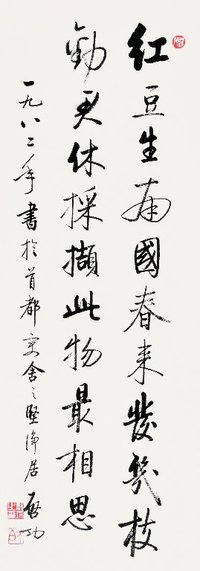 红豆生南國春来發幾枝
勸君休採擷此物最相思
一九八二年書於首都寓舍之堅淨居啟功